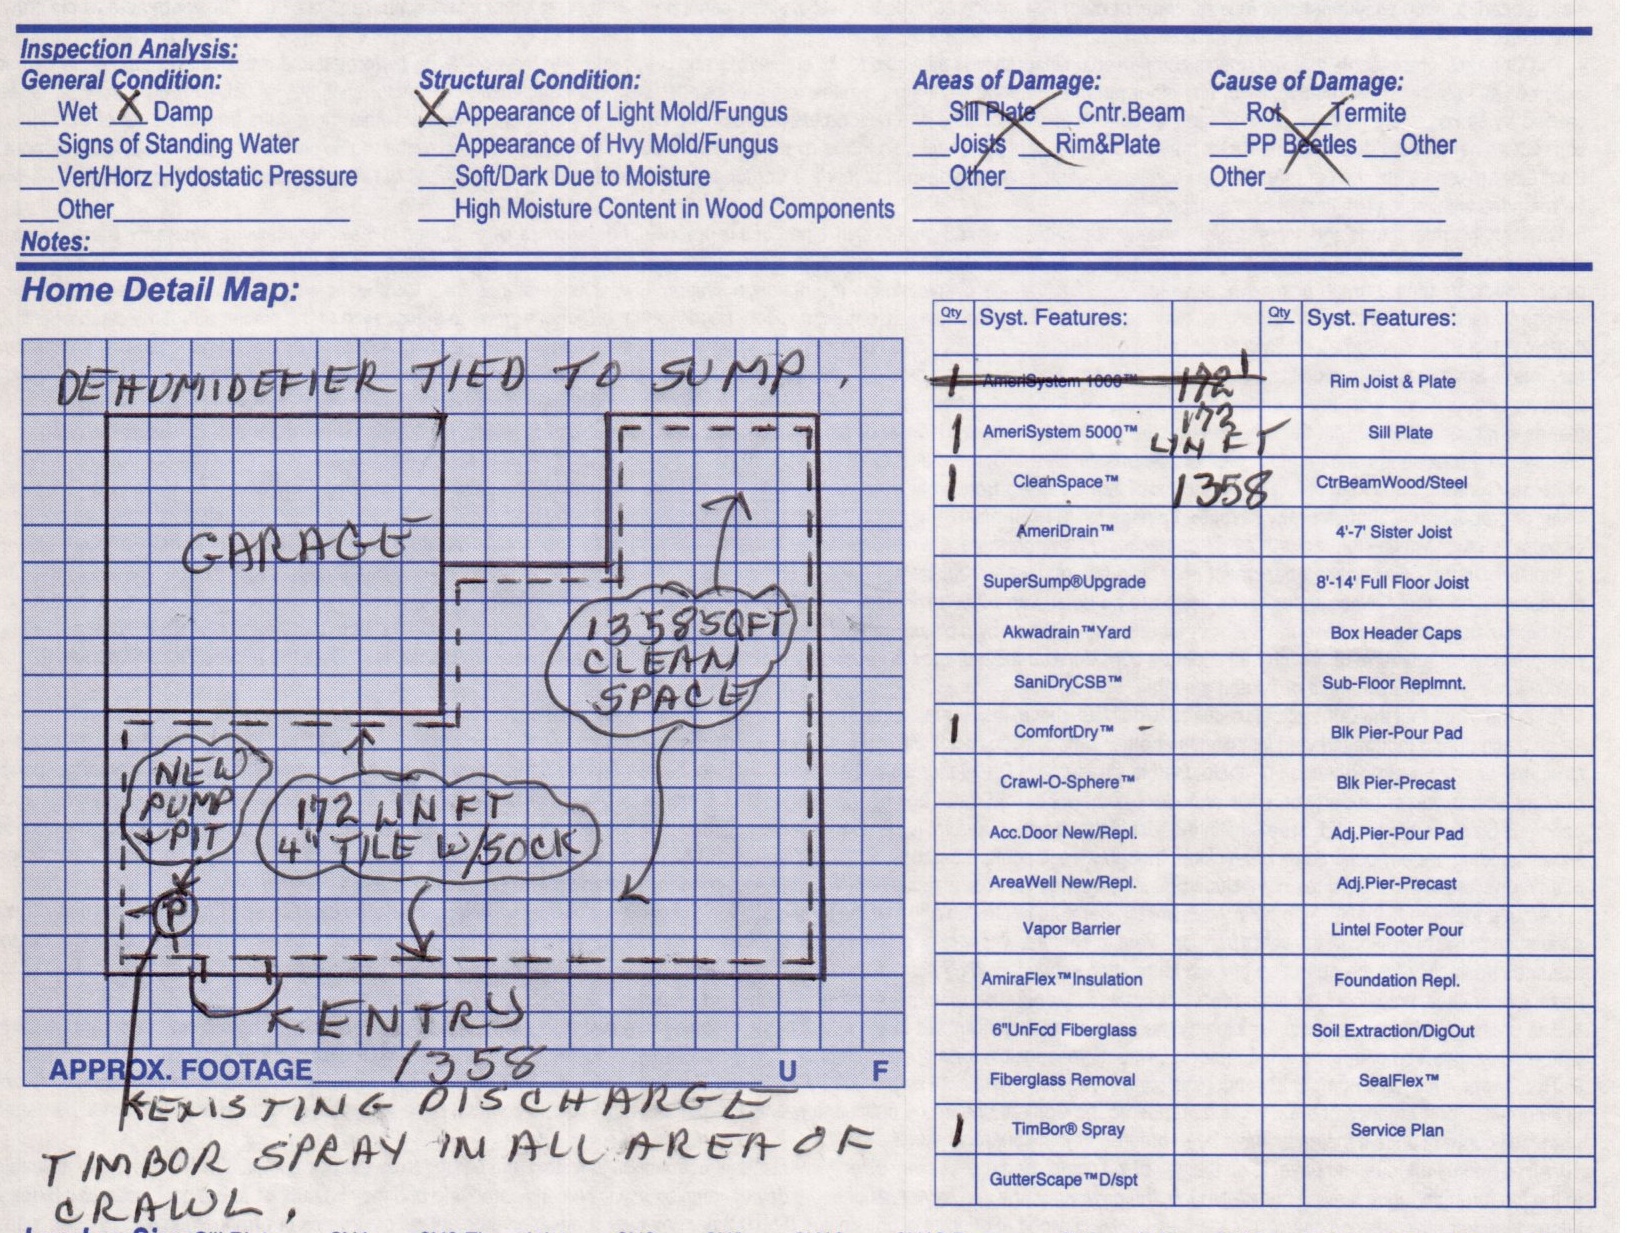 Inspection Analysis:
General Condition: Structural Condition: Areas of Damage: Cause of Damage:
___Wet X Damp X Appearance of Light Mold/Fungus ___Sill Plate ___Cntr.Beam ___Rot ___Termite
___Signs of Standing Water ___Appearance of Hvy Mold/Fungus ___Joists ___Rim&Plate ___PP Beetles ___Other
___Vert/Horz Hydostatic Pressure ___Soft/Dark Due to Moisture ___Other___ Other___
___Other___ ___High Moisture Content in Wood Components
Notes:
Home Detail Map:
DEHUMIDEFIER TIED TO SUMP.
GARAGE
1358 SQFT
CLEAN
SPACE
NEW
PUMP
+PIT
172 LIN FT
4" TILE W/SOCK
P
ENTRY
APPROX. FOOTAGE 1358 U F
EXISTING DISCHARGE
TIMBOR SPRAY IN ALL AREA OF
CRAWL.
Qty Syst. Features: Qty Syst. Features:
1 AmeriSystem 1000™ 172 1 Rim Joist & Plate
1 AmeriSystem 5000™ 172 LIN FT Sill Plate
1 CleanSpace™ 1358 CtrBeamWood/Steel
AmeriDrain™ 4'-7' Sister Joist
SuperSump®Upgrade 8'-14' Full Floor Joist
Akwadrain™Yard Box Header Caps
SaniDryCSB™ Sub-Floor Replmnt.
1 ComfortDry™ Blk Pier-Pour Pad
Crawl-O-Sphere™ Blk Pier-Precast
Acc.Door New/Repl. Adj.Pier-Pour Pad
AreaWell New/Repl. Adj.Pier-Precast
Vapor Barrier Lintel Footer Pour
AmiraFlex™Insulation Foundation Repl.
6"UnFcd Fiberglass Soil Extraction/DigOut
Fiberglass Removal SealFlex™
1 TimBor® Spray Service Plan
GutterScape™D/spt